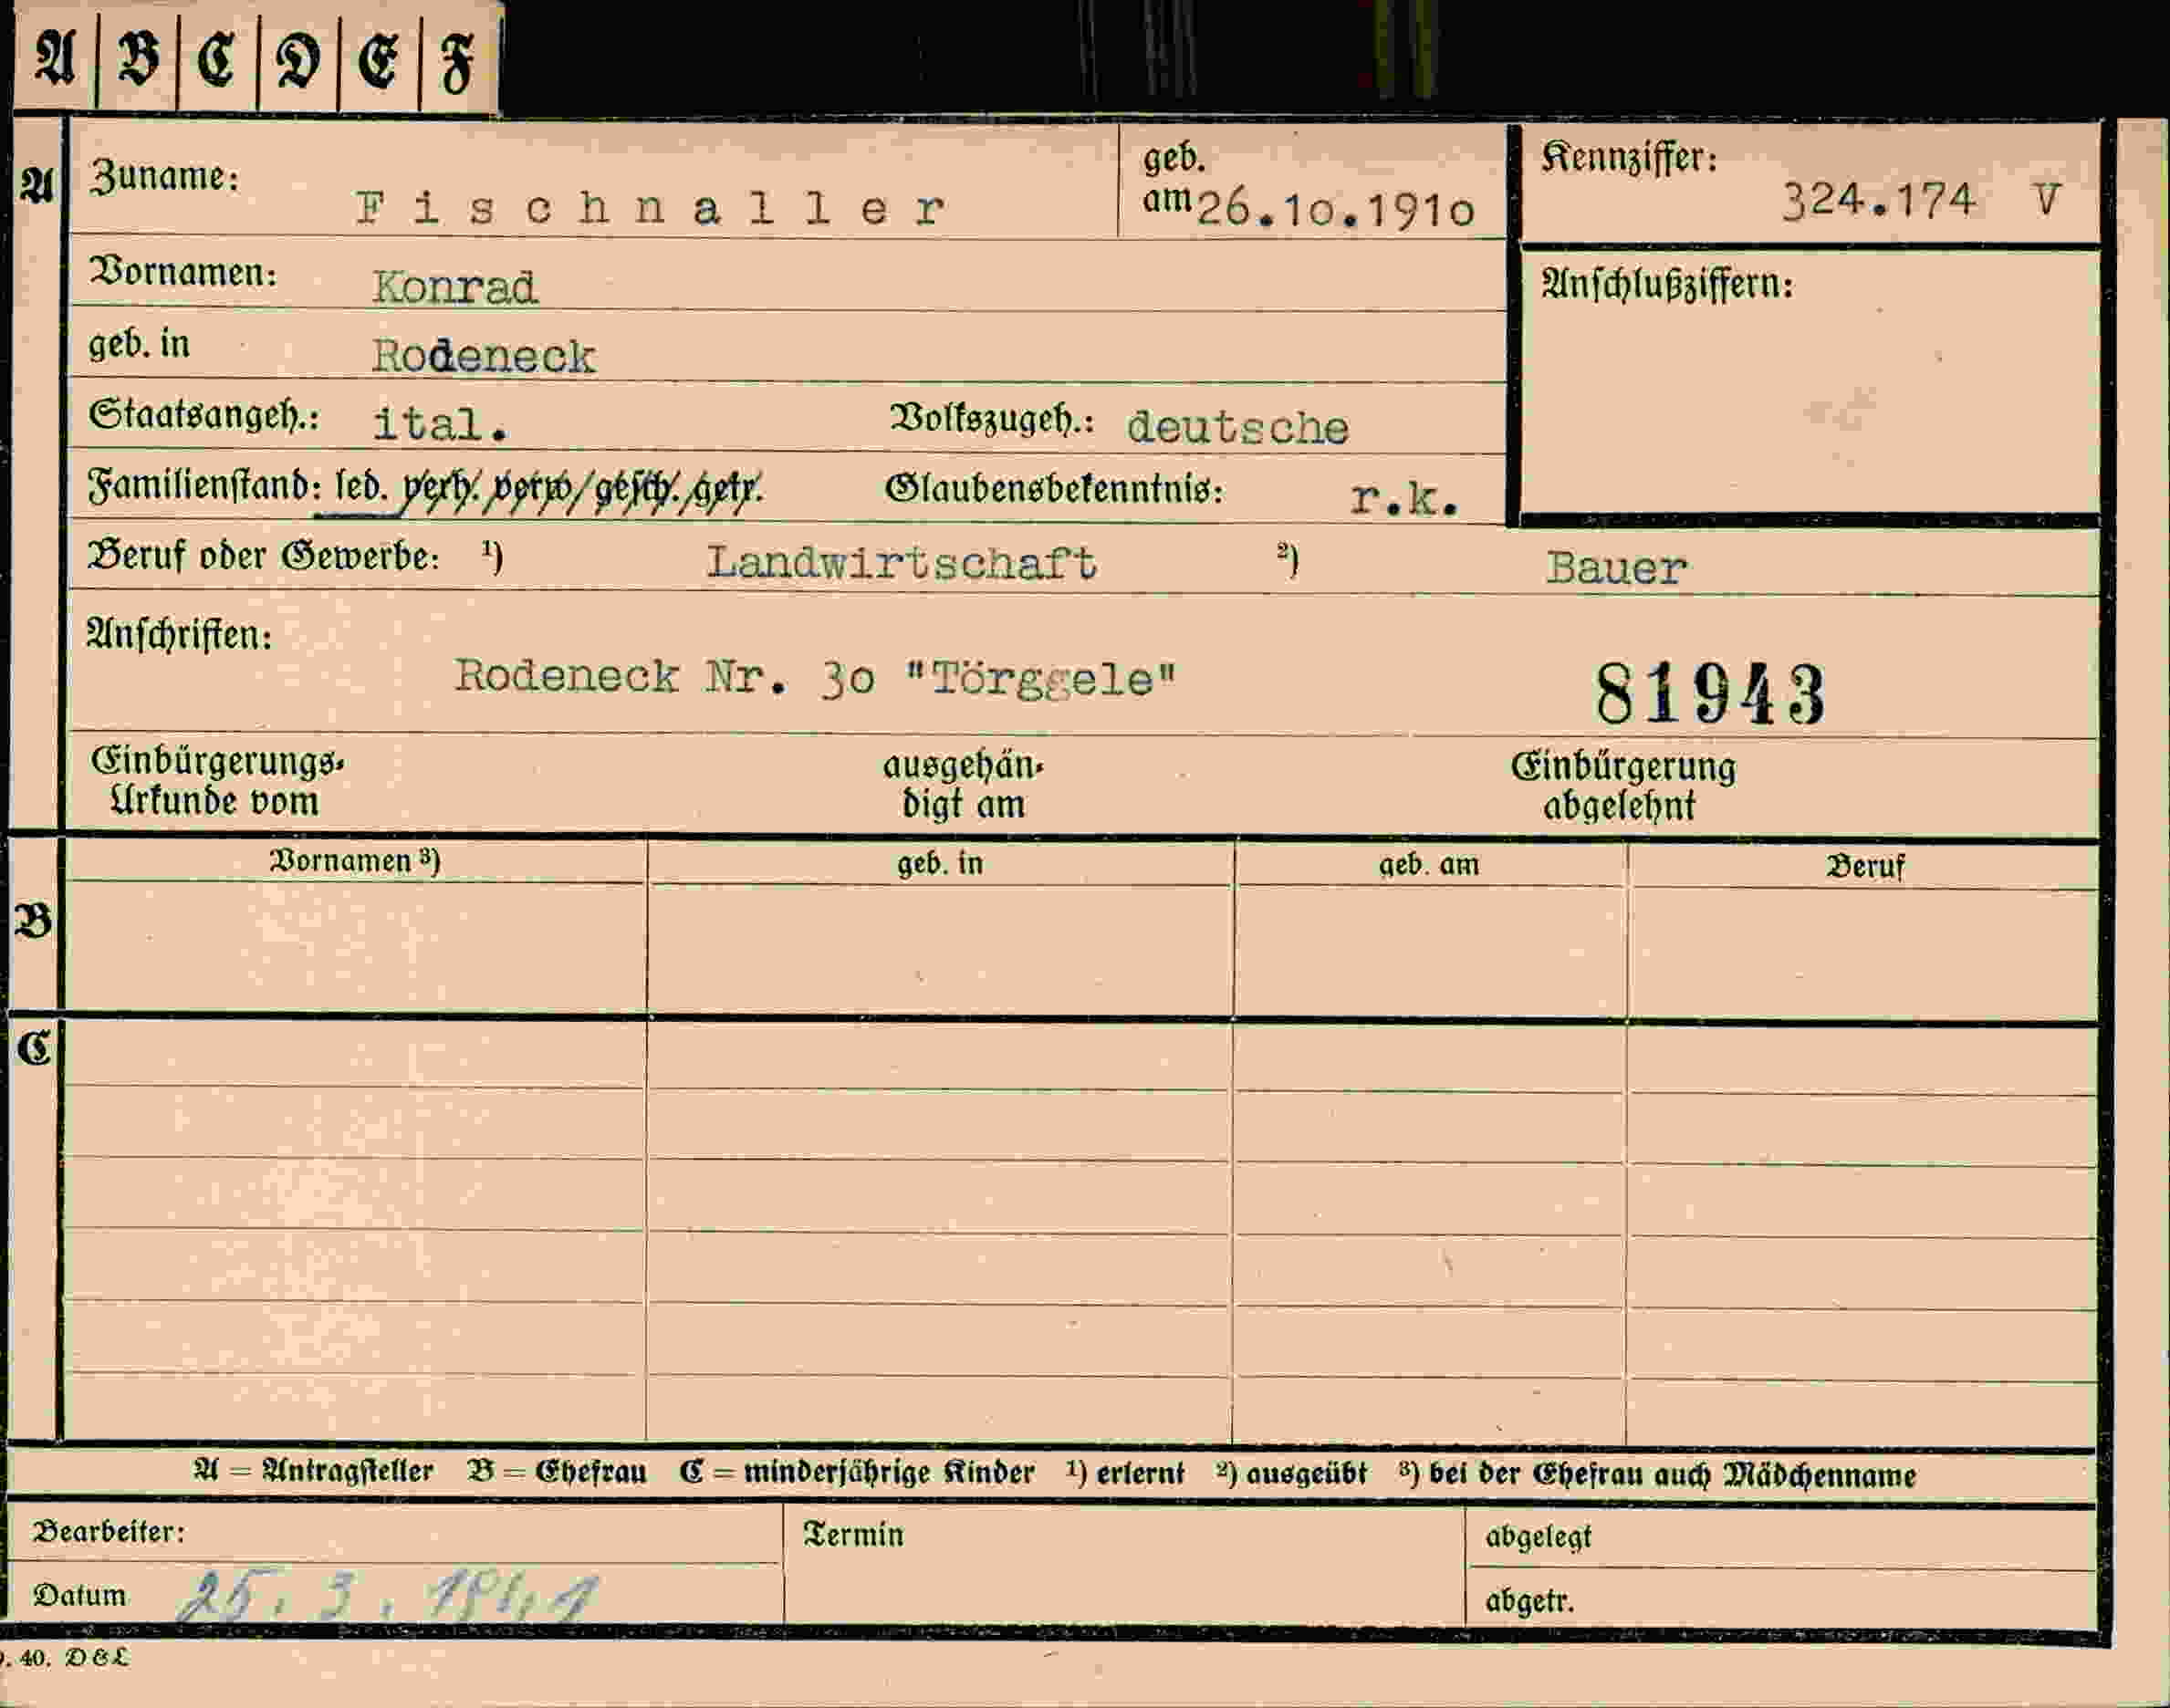 A B C D E F
A Zuname: Fischnaller geb. am 26.10.1910 Kennziffer: 324.174 V
Vornamen: Konrad Anschlußziffern:
geb. in Rodeneck
Staatsangeh.: ital. Volkszugeh.: deutsche
Familienstand: led. verh. verw. gesch. getr. Glaubensbekenntnis: r.k.
Beruf oder Gewerbe: ¹) Landwirtschaft ²) Bauer
Anschriften:
Rodeneck Nr. 30 "Törggele" 81943
Einbürgerungs- ausgehän- Einbürgerung
Urkunde vom digt am abgelehnt
Vornamen ³) geb. in geb. am Beruf
B
C
A = Antragsteller B = Ehefrau C = minderjährige Kinder ¹) erlernt ²) ausgeübt ³) bei der Ehefrau auch Mädchenname
Bearbeiter: Termin abgelegt
Datum 25. 3. 1941 abgetr.
. 40. D & L